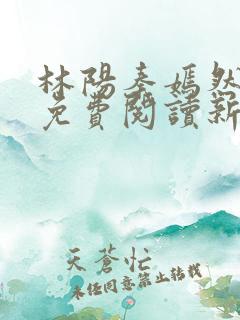 林陽秦嫣然
免費閱讀新
天蒼忙
未经同意禁止转载